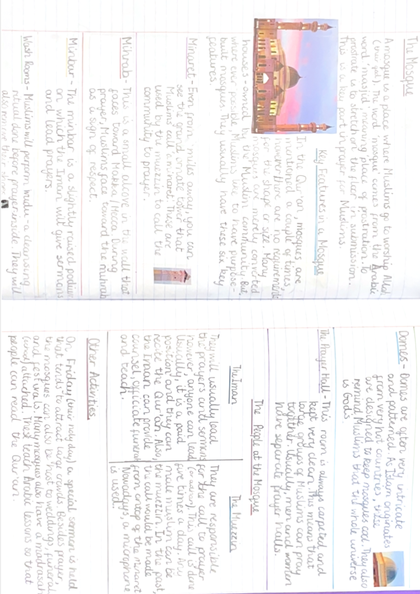 The Mosque
A mosque is a place where Muslims go to worship Allah
(one God). The word mosque comes from the Arabic
word masjid meaning "place of prostration". To
prostrate is to stretch on the floor in submission.
This is a key part in prayer for Muslims.
Key Features in a Mosque
In the Qur'an, mosques are
mentioned a couple of times
however there are no requirements
for the shape or size. Many
mosques are merely converted
houses - owned by the Muslim community. But,
where ever possible Muslims like to have purpose-
built mosques. They usually have these six key
features.
Minaret - Even from miles away, you can
see the tower that
Muslims call a minaret.
used by the muezzin to call the
community to prayer.
Mihrab - This is a small alcove in the wall that
faces toward Makkah / Mecca. During
prayer, Muslims face toward the mihrab
as a sign of respect.
Minbar - The minbar is a slightly raised podium
on which the Imam will give sermons
and lead prayers.
Wash Rooms - Muslims will perform wudu - a cleansing
ritual before prayer inside. They will
also remove their
Domes - Domes are often very intricate
and patterned. As Islam originates
from very hot countries, they
are designed to keep mosques cool. They also
remind Muslims that the whole universe
is Gods.
The Prayer Hall - This room is always carpeted and
kept very clean. This means that
large groups of Muslims can pray
together. Usually, men and women
have separate prayer halls.
The People at the Mosque
The Imam
They will usually lead
the prayers and sermons
however anyone can lead.
Usually, it is a paid
position and they can
recite the Qur'an. Also,
the Imam can provide
counsel, officiate funerals
and teach.
The Muezzin
They are responsible
for the call to prayer
(or adhan). This call is done
five times a day. No
the muezzin. In the past,
the call would be made
from center of the minaret
Nowadays, a microphone
is used.
Other Activities
On Friday (holy day) a special sermon is held
that tends to attract large crowds. Besides prayer,
the mosques can also be host to weddings, funerals
and festivals. Many mosques also have a madrasah
(school) attached. They teach Arabic lessons so that
people can read the Qur'an.